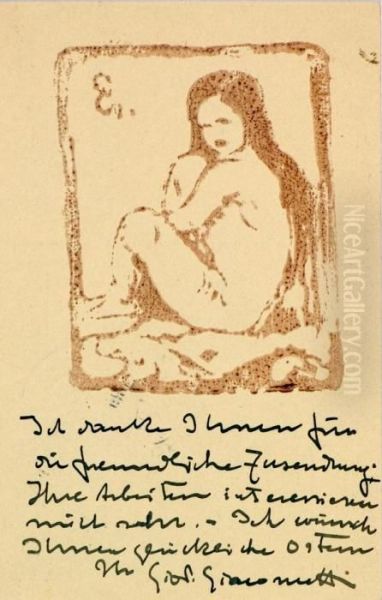 Ich danke Ihnen für
die freundliche Zusendung.
Ihre Arbeiten interessieren
mich sehr. - Ich wünsch
Ihnen glückliche Ostern
Ihr Giov. Giacometti
NiceArtGallery.com